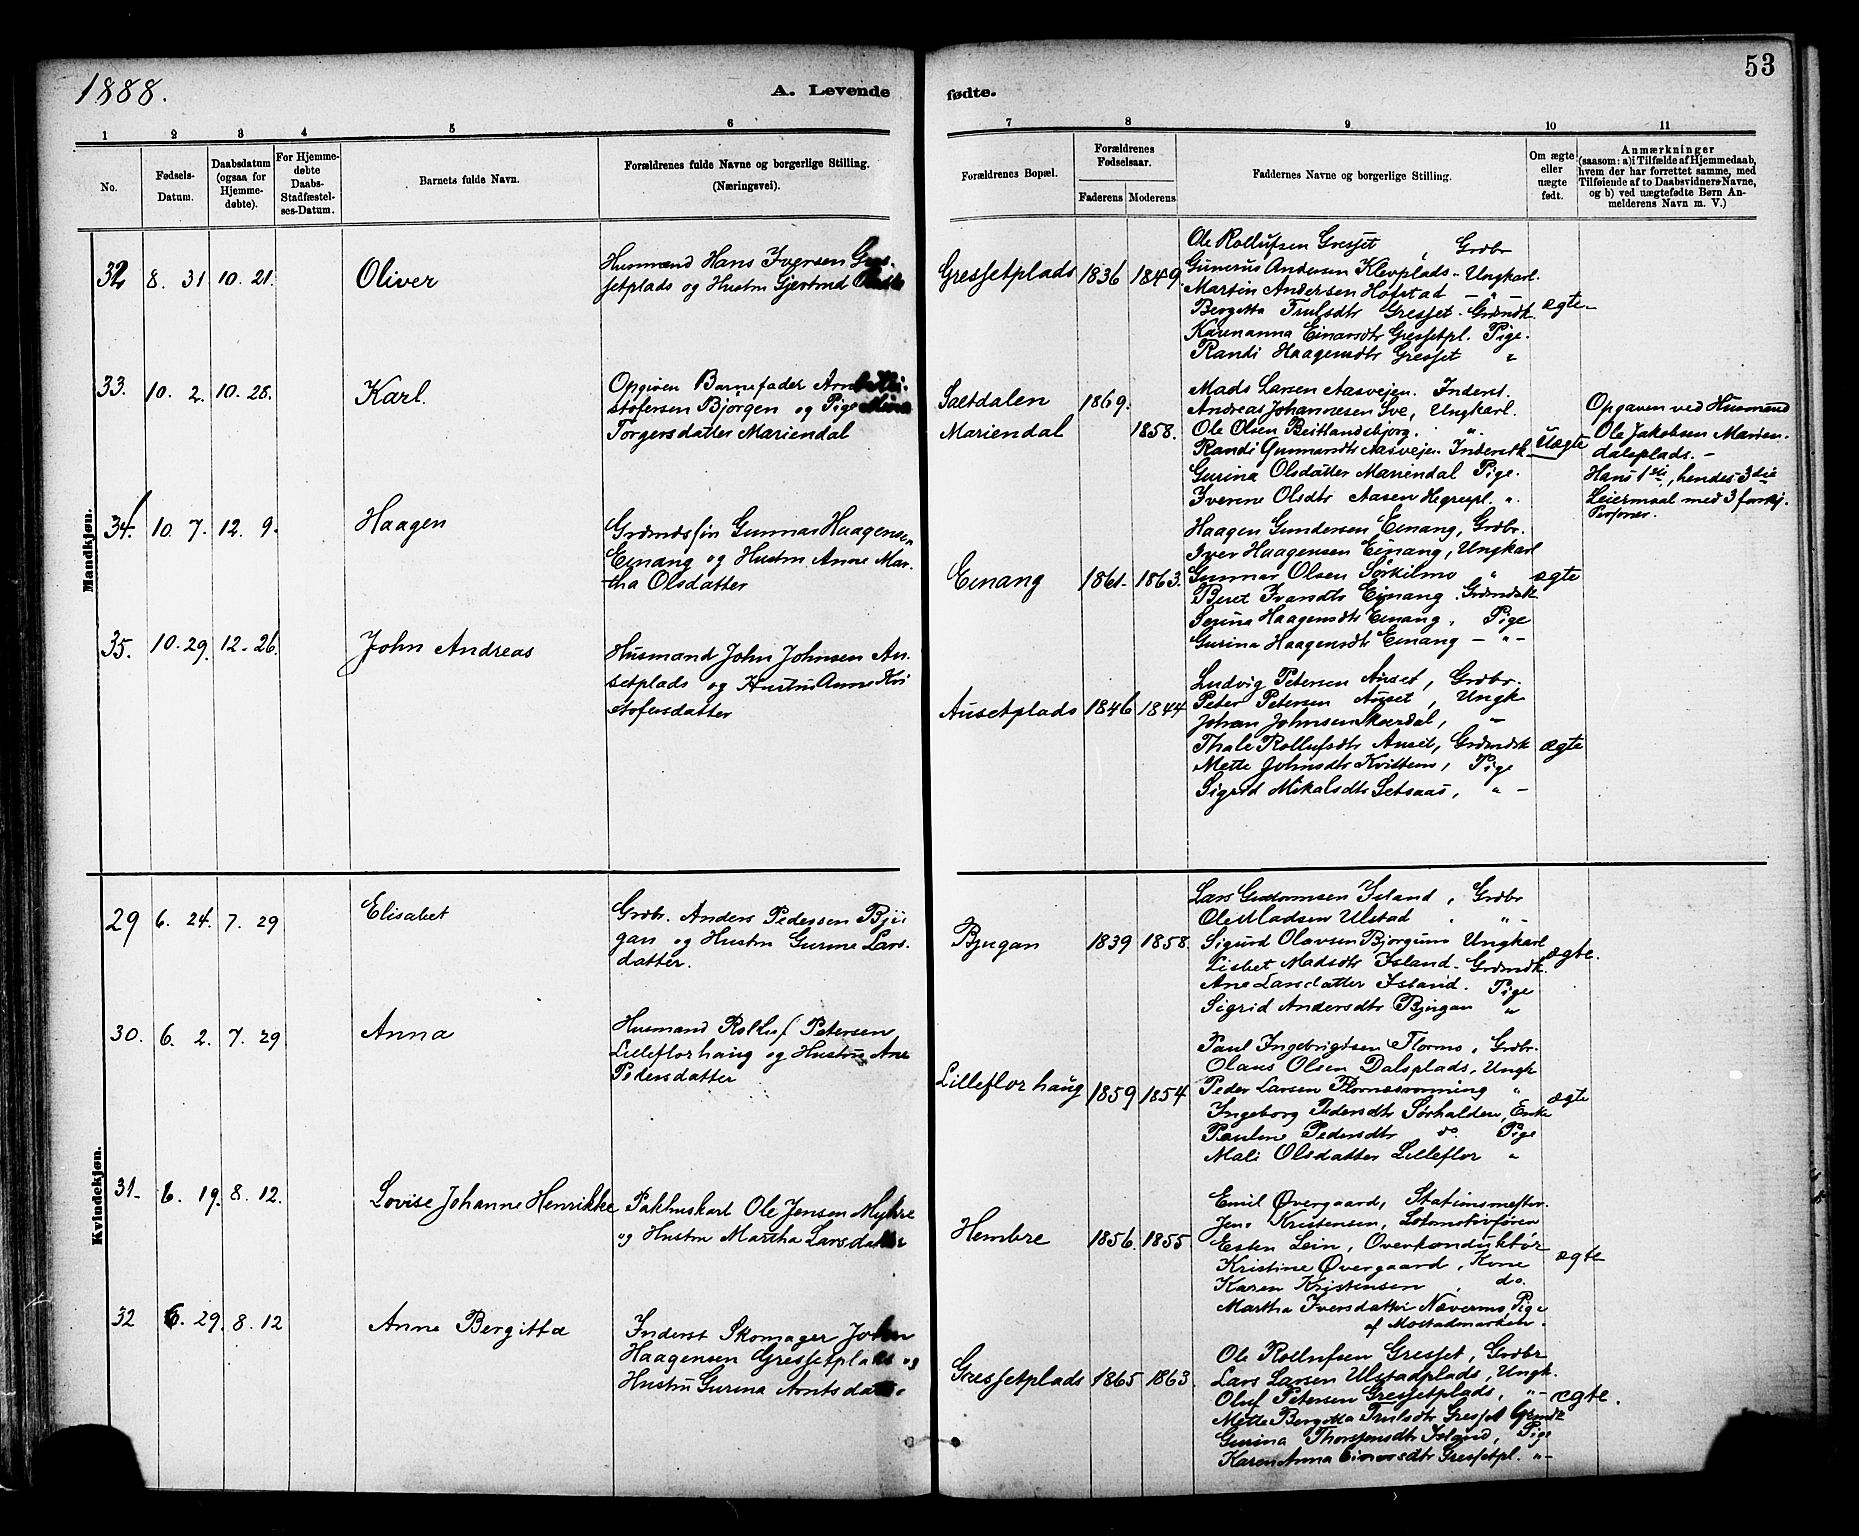 1888.
A. Levende fødte.
53
1 2 3 4 5 6 7 8 9 10 11
No.
Fødsels-Datum.
Daabsdatum (ogsaa for Hjemmedøbte).
For Hjemmedøbte Daabs-Stadfæstelses-Datum.
Barnets fulde Navn.
Forældrenes fulde Navne og borgerlige Stilling. (Næringsvei).
Forældrenes Bopæl.
Forældrenes Fødselsaar.
Faderens Moderens
Faddernes Navne og borgerlige Stilling.
Om ægte eller uægte født.
Anmærkninger (saasom: a) i Tilfælde af Hjemmedaab, hvem der har forrettet samme, med Tilføiende af to Daabsvidners Navne, og b) ved uægtefødte Børn Anmelderens Navn m. V.)
Mandkjøn.
32 8. 31 10. 21. Oliver
Husmand Hans Iversen Gres-
setplads og Hustru Gjertrud
Gressetplads 1836 1849.
Ole Rollufsen Gresset, Grdbr
Gunerus Andersen Klevplads - Ungkarl.
Martin Andersen Hofstad - " -
Bergitta Trulsdtr Gresset - Grdmdk.
Karenanna Einarsdtr Gressetpl. Pige.
Randi Haagensdtr Gresset "
ægte.
33. 10. 2. 10. 28. Karl.
Opgiven Barnefader Arnt Kri-
stofersen Bjørgen og Pige
Torgersdatter Mariendal
Saltdalen 1869.
Mariendal 1858.
Mads Larsen Aasvejen. Inderst.
Andreas Johannesen Sve, Ungkarl.
Ole Olsen Beitlandsbjorg. "
Randi Gunnarsdtr Aasvejen Inderstk
Gurina Olsdatter Mariendal Pige.
Iverine Olsdtr Aasen Hegrespl. "
Uægte
Opgaven ved Husmand
Ole Jakobsen Marien-
dalsplads. -
Hans 1ste, hendes 3die
Leiermaal med 3 forskj.
Personer.
34. 10. 7. 12. 9. Haagen
Grdmdssøn Gunnar Haagensen
Einang og Hustru Anne Mar-
tha Olsdatter
Einang 1861- 1863.
Haagen Gundersen Einang, Grdbr.
Iver Haagensen Einang, Ungkarl
Gunnar Olsen Sørkilmo "
Beret Ivarsdtr Einang. Grdmdsk
Serina Haagensdtr Einang, Pige
Gurina Haagensdtr Einang - " -
ægte
35. 10. 29. 12. 26. John Andreas
Husmand John Johnsen Au-
setplads og Hustru Anne Kri
stofersdatter
Ausetplads 1846 1844
Ludvig Petersen Auset, Grdbr.
Peter Petersen Auset, Ungk
Johan Johnsen Mærdal, "
Thale Rollufsdtr Auset, Grdmdsk
Mette Johnsdtr Kvittem, Pige
Sigrid Mikalsdtr Setsaas, " -
ægte
Kvindekjøn.
29 6. 24. 7. 29 Elisabet
Grdbr. Anders Pedersen Bju-
gan og Hustru Gurine Lars-
datter.
Bjugan 1839 1858.
Lars Guttormsen Island, Grdbr
Ole Madsen Ulstad " -
Sigurd Olavsen Bjørgum Ungkarl
Lisbet Madsdtr Island - Grdmdk.
Ane Larsdatter Island. Pige
Sigrid Andersdtr Bjugan "
ægte.
30. 6. 2. 7. 29 Anna
Husmand Rolluf Petersen
Lilleflorhaug og Hustru Ane
Pedersdatter
Lilleflorhaug 1859 1854
Paul Ingebrigtsen Flormo, Grdbr.
Olaus Olsen Dalsplads, Ungk
Peder Larsen Flornesrønning "
Ingeborg Pedersdtr Sørhalden, Enke
Pauline Pedersdtr do. Pige
Mali Olsdatter Lilleflor "
ægte
31. 6. 19. 8. 12. Lovise Johanne Henrikke
Pakhuskarl Ole Jensen Myhre
og Hustru Martha Larsdatter
Hembre 1856. 1855
Emil Øvergaard, Stationsmester.
Jens Kristensen, Lokomotivfører
Esten Lein, Overkonduktør
Kristine Øvergaard, Kone
Karen Kristensen, do.
Martha Iversdatter Nævermo, Pige
af Mostadmarken.
ægte
32 6. 29. 8. 12 Anne Bergitta
Inderst Skomager John
Haagensen Gressetplads og
Hustru Gurina Arntsdatter
Gressetplads 1865 1863.
Ole Rollufsen Gresset, Grdbr
Lars Larsen Ulstadplads, Ungk.
Oluf Petersen Gressetplads, " -
Mette Bergitta Trulsdtr Gresset Grmdk
Gurina Thorstensdtr Island, Pige
Karen Anna Einarsdtr Gressetpl. " -
ægte.